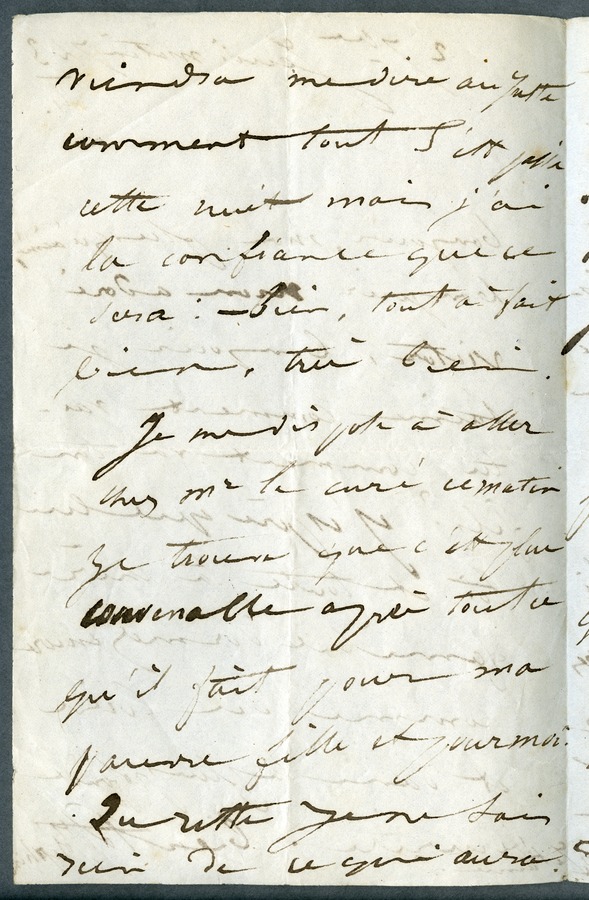 viendra me dire au juste
comment tout s'est passé
cette nuit mais j'ai
la confiance que ce
sera : bien, tout à fait
bien, très bien.
Je me dispose à aller
chez mr le curé ce matin
je trouve que c'est plus
convenable après tout ce
qu'il fait pour ma
pauvre fille et pour moi.
Du reste je ne sais
rien de ce qui aura